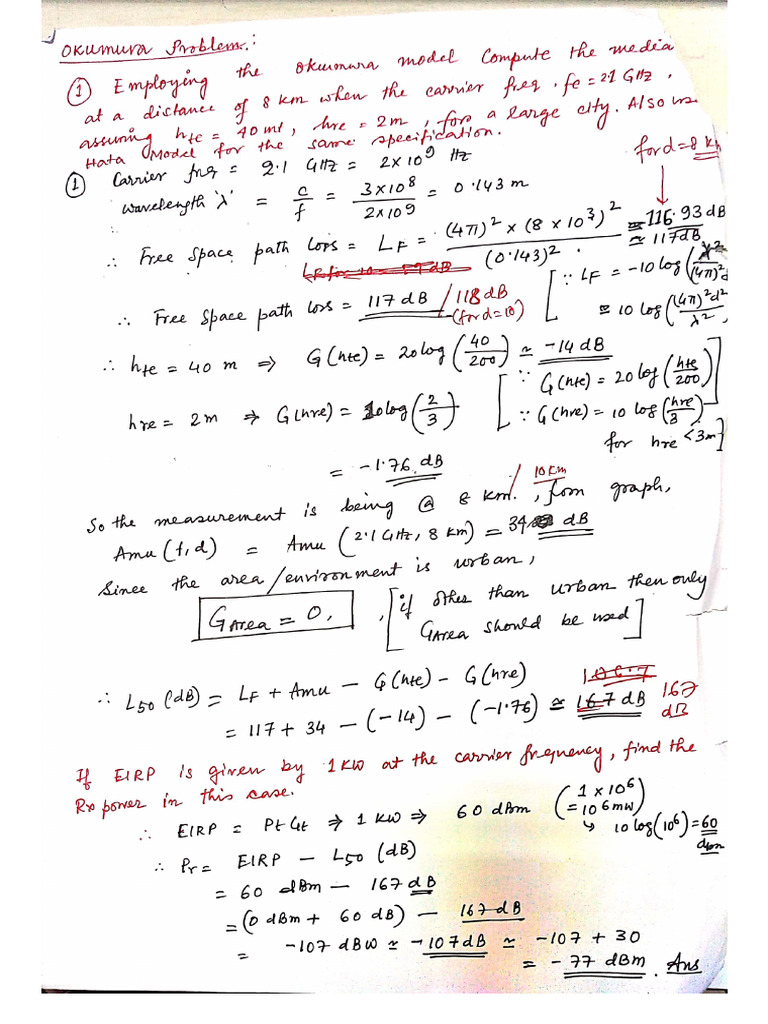 Okumura Problem:
① Employing the Okumura model compute the media
at a distance of 8 km when the carrier freq. fc = 2.1 GHz,
assuming hte = 40 mt, hre = 2m, for a large city. Also use
Hata Model for the same specification.
① Carrier freq = 2.1 GHz = 2×10⁹ Hz
for d = 8 km
wavelength 'λ' = c/f = 3×10⁸/2×10⁹ = 0.143 m
∴ Free Space path Loss = LF = (4π)² × (8 × 10³)² / (0.143)² = 116.93 dB
≃ 117 dB
[∵ LF = -10 log (λ²/(4π)²d
≃ 10 log ((4π)²d²/λ²)
∴ Free Space path loss = 117 dB / 118 dB
(for d=10)
∴ hte = 40 m ⇒ G(hte) = 20 log (40/200) ≃ -14 dB
[∵ G(hte) = 20 log (hte/200)]
hre = 2m ⇒ G(hre) = 10 log (2/3)
[∵ G(hre) = 10 log (hre/3)
for hre < 3m]
= -1.76 dB
So the measurement is being @ 8 km. / 10 km, from graph,
Amu (f,d) = Amu (2.1 GHz, 8 km) = 34 dB
Since the area/environment is urban,
GArea = 0, , [if other than urban then only
GArea should be used]
∴ L50 (dB) = LF + Amu - G(hte) - G(hre)
= 117 + 34 - (-14) - (-1.76) ≃ 167 dB 167 dB
If EIRP is given by 1 KW at the carrier frequency, find the
Rx power in this case.
∴ EIRP = Pt Gt ⇒ 1 KW ⇒ 60 dBm (1 × 10⁶
= 10⁶ mW)
↳ 10 log(10⁶) = 60 dBm
∴ Pr = EIRP - L50 (dB)
= 60 dBm - 167 dB
= (0 dBm + 60 dB) - 167 dB
= -107 dBW ≃ -107 dB ≃ -107 + 30
= -77 dBm. Ans